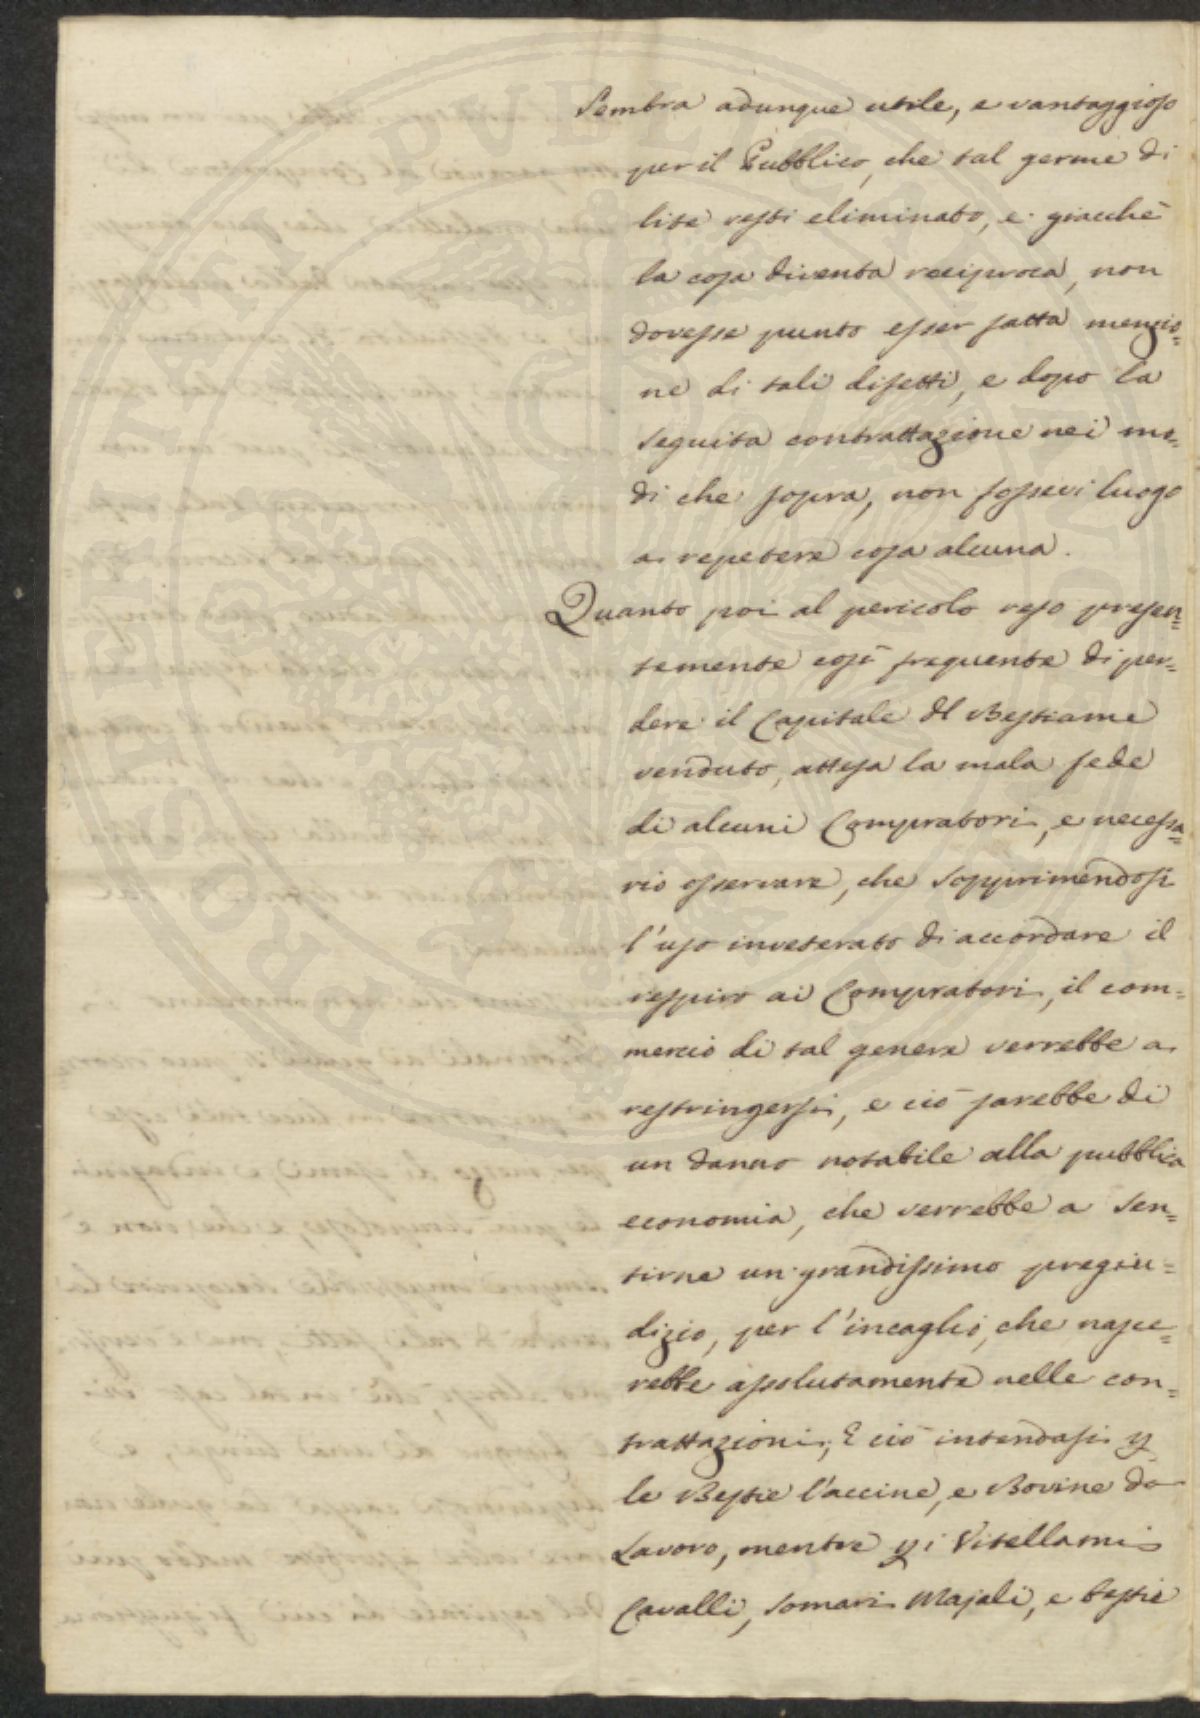 Sembra adunque utile, e vantaggioso
per il Pubblico, che tal germe di
lite resti eliminato, e giacchè
la cosa diventa reciproca, non
dovesse punto esser fatta menzio=
ne di tali difetti, e dopo la
seguita contrattazione nei mo=
di che sopra, non fossevi luogo
a repetere cosa alcuna.
Quanto poi al pericolo reso presen=
temente così frequente di per=
dere il Capitale del Bestiame
venduto, attesa la mala fede
di alcuni Compratori, e necessa=
rio osservare, che sopprimendosi
l'uso inveterato di accordare il
respiro ai Compratori, il com=
mercio di tal genere verrebbe a
restringersi, e ciò sarebbe di
un danno notabile alla pubblica
economia, che verrebbe a sen=
tirne un grandissimo pregiu=
dizio, per l'incaglio, che nasce=
rebbe assolutamente nelle con=
trattazioni; E ciò intendasi p
le Bestie Vaccine, e Bovine da
Lavoro, mentre p i Vitellami
Cavalli, Somari Majali, e bestie
PROSPERITATI PVBLICAE